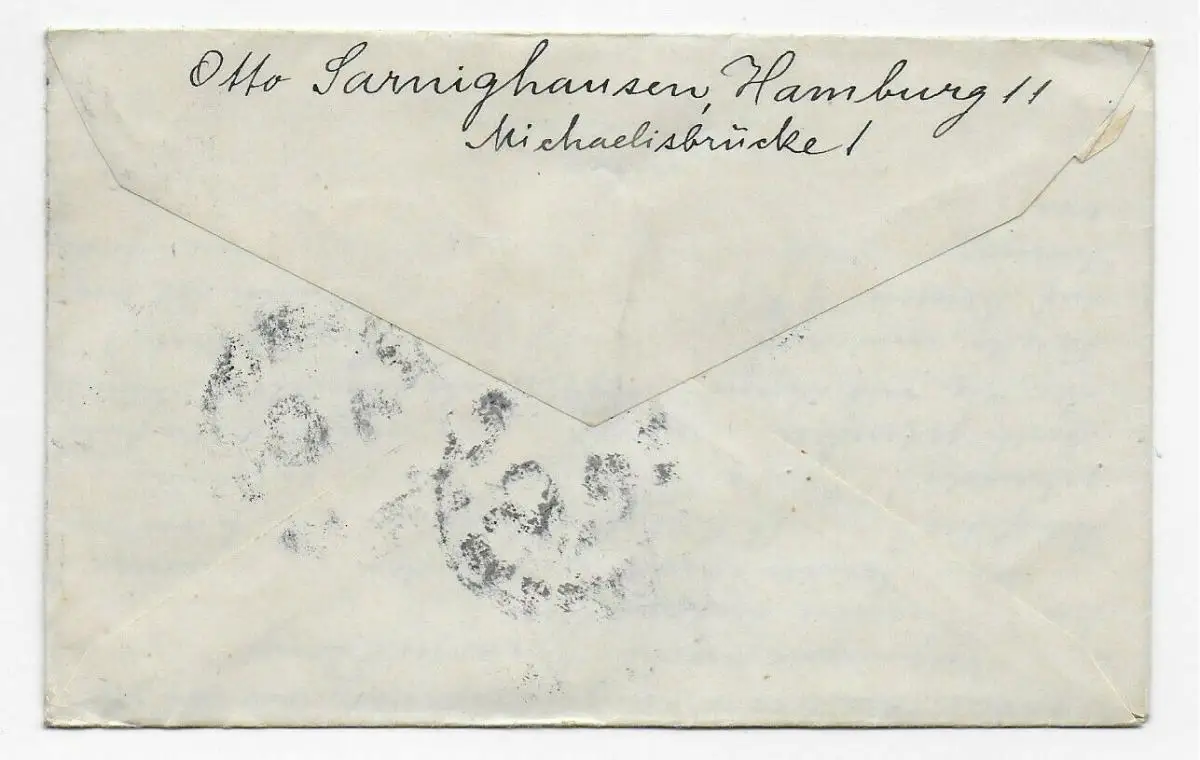 Otto Sarnighausen, Hamburg 11
Michaelisbrücke 1